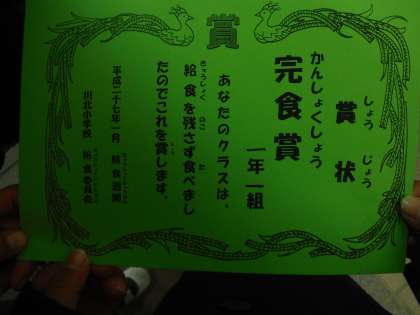 賞
しょう じょう
賞状
かんしょくしょう
完食賞
一年一組
あなたのクラスは、
きゅうしょく のこ た
給食を残さず食べまし
しょう
たのでこれを賞します。
平成二十七年一月 給食週間
川北小学校 給食委員会